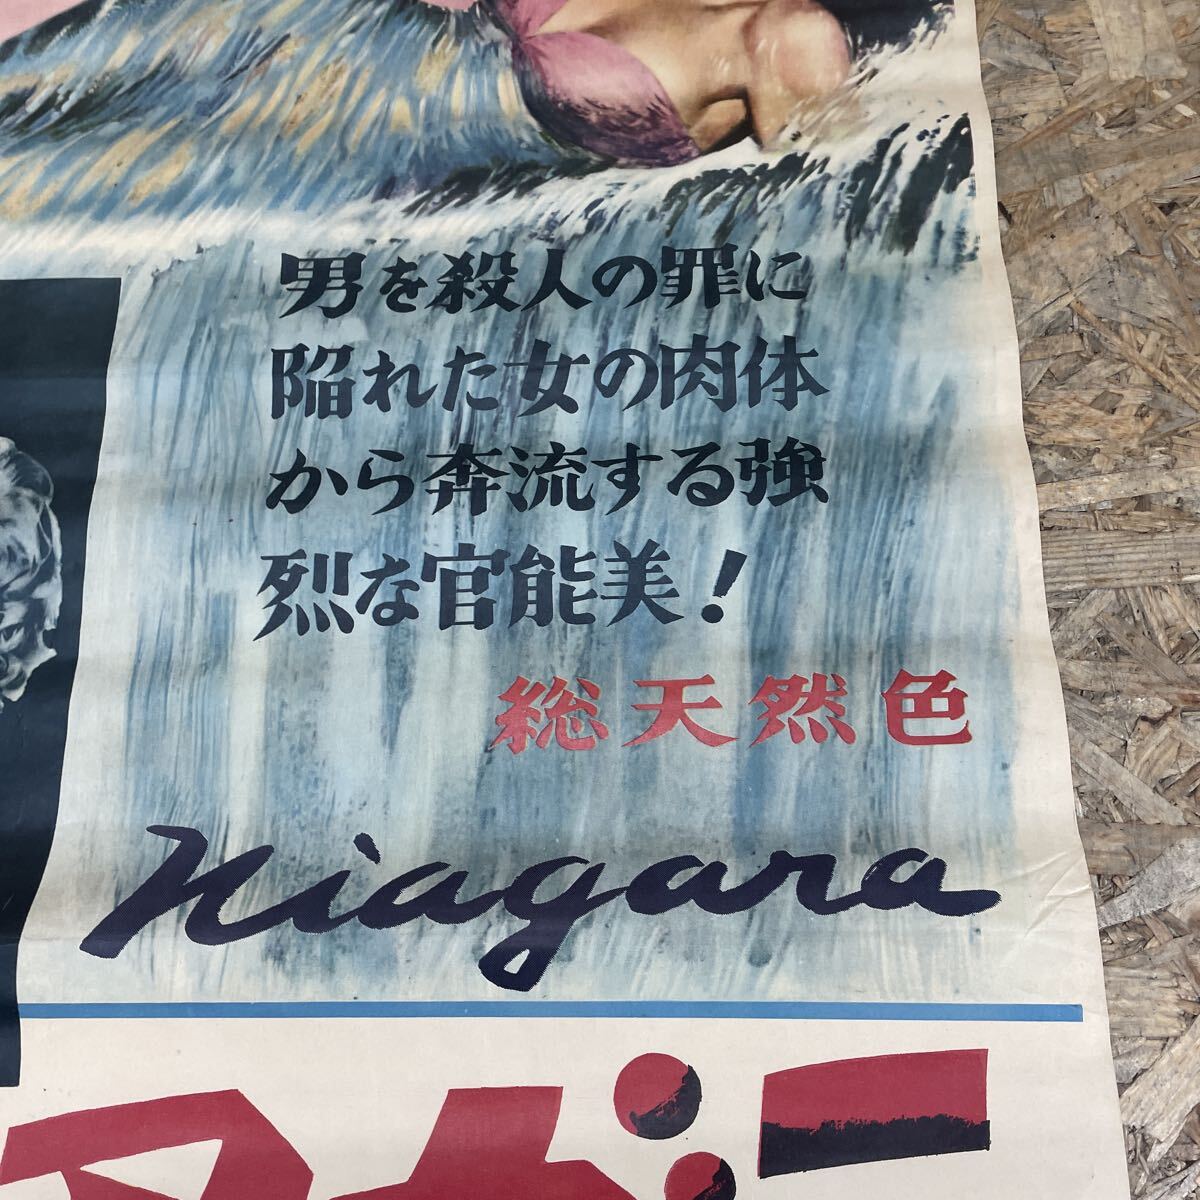 男を殺人の罪に
陥れた女の肉体
から奔流する強
烈な官能美!
総天然色
Niagara